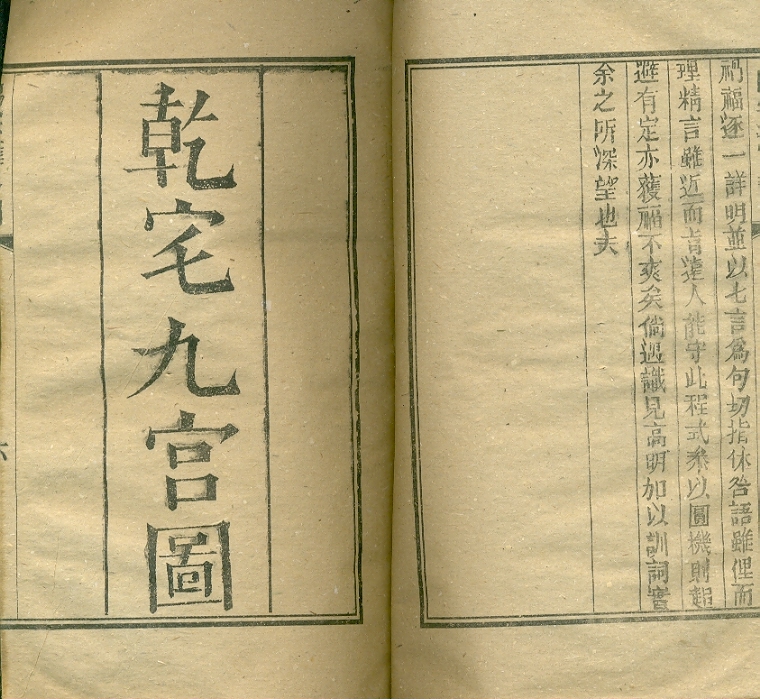 禍福逐一詳明並以七言為句切指休咎語雖俚而
理精言雖近而旨遠人能守此程式參以圓機則趨
避有定亦獲福不爽矣倘遇識見高明加以訓詞實
余之所深望也夫
乾宅九宮圖
六